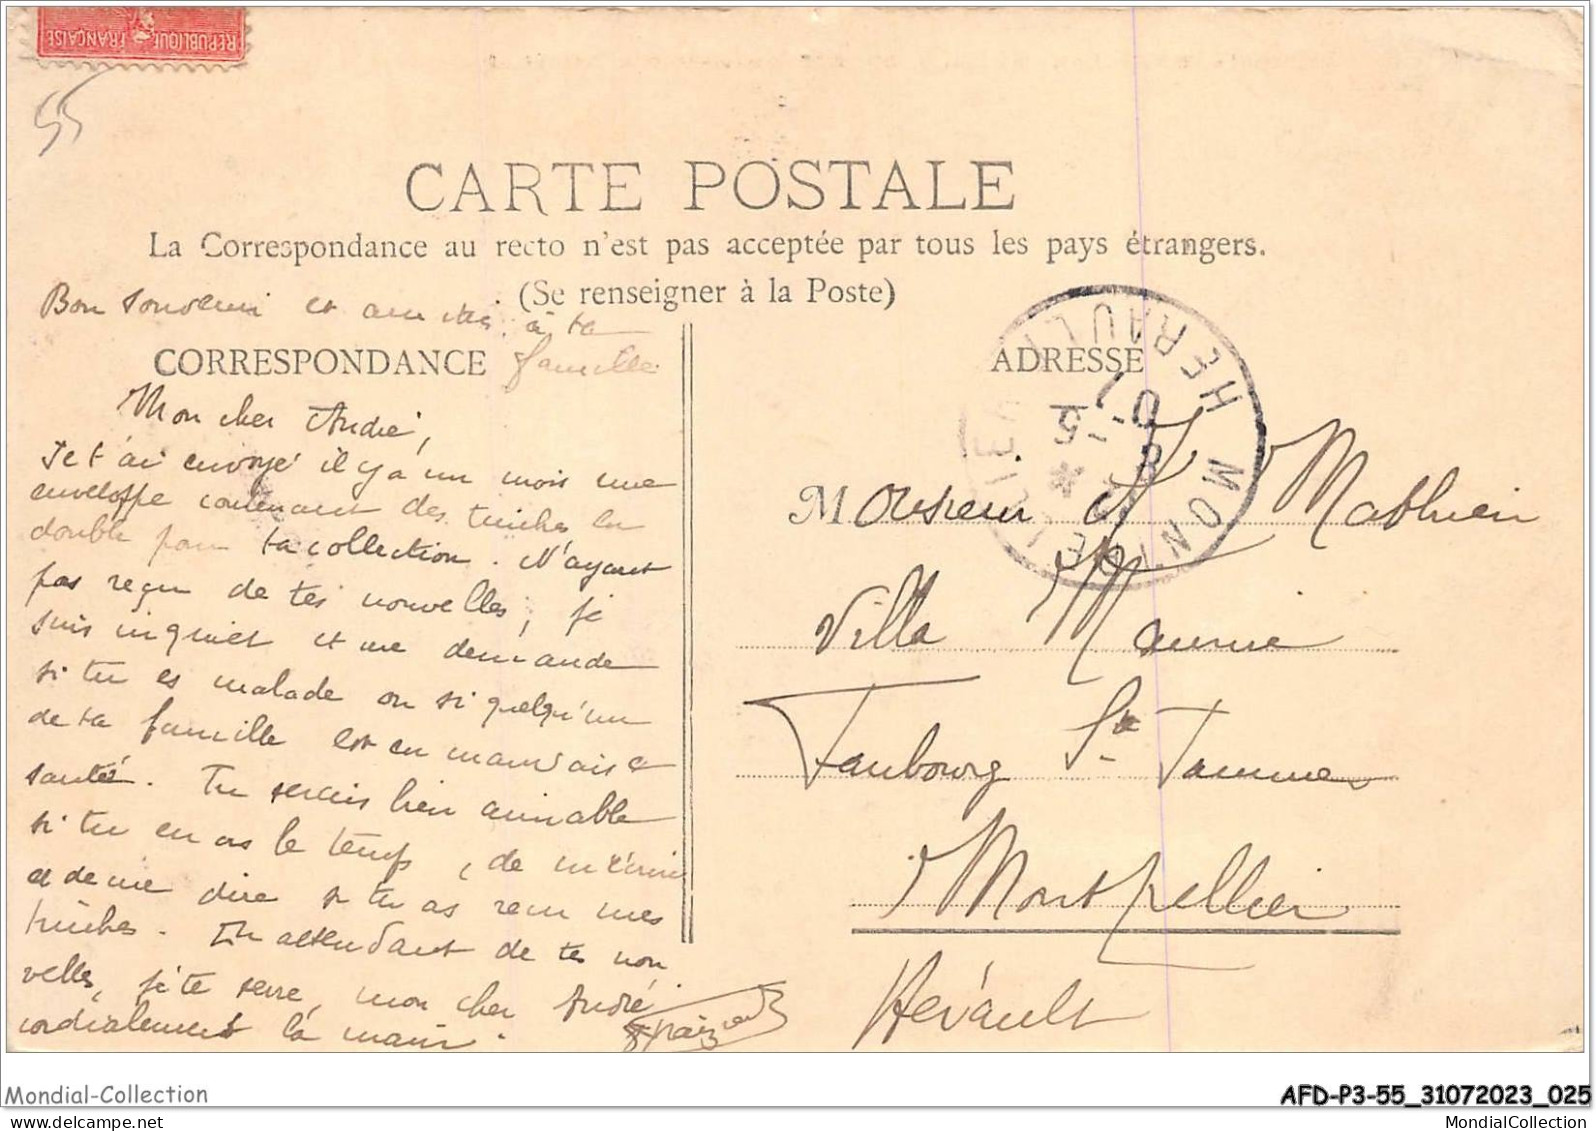 RÉPUBLIQUE FRANÇAISE
55
CARTE POSTALE
La Correspondance au recto n'est pas acceptée par tous les pays étrangers.
(Se renseigner à la Poste)
Bon souvenir et amitiés à ta
famille
CORRESPONDANCE
Mon cher André,
Je t'ai envoyé il y a un mois une
enveloppe contenant des timbres en
double pour ta collection. N'ayant
pas reçu de tes nouvelles, je
suis inquiet et me demande
si tu es malade ou si quelqu'un
de ta famille est en mauvaise
santé. Tu serais bien aimable
si tu en as le temps, de m'écrire
et de me dire si tu as reçu mes
timbres. En attendant de tes nou
velles, je te serre, mon cher André
cordialement la main.
ADRESSE
MONTPELLIER HERAULT
Monsieur Mathieu
Villa
Faubourg St Jaumes
Montpellier
Hérault
Mondial-Collection
AFD-P3-55_31072023_025
MondialCollection